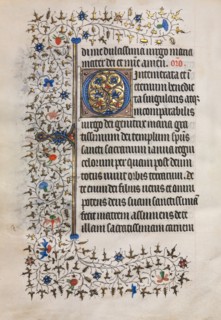 di me dulcissima uirgo maria
mater dei et mie amen. oro.
O intemerata et i
eternum benedic
ta singularis atq
incomparabilis
uirgo dei genitrix maria gra
tissimum dei templum spus
sancti sacrarium ianua regni
celorum per quam post deum
totus uiuit orbis terrarum. de
te enim dei filius uerus et omni
potens deus suam sanctissimā
fecit matrem assumens de te
illam sacratissimam carnem